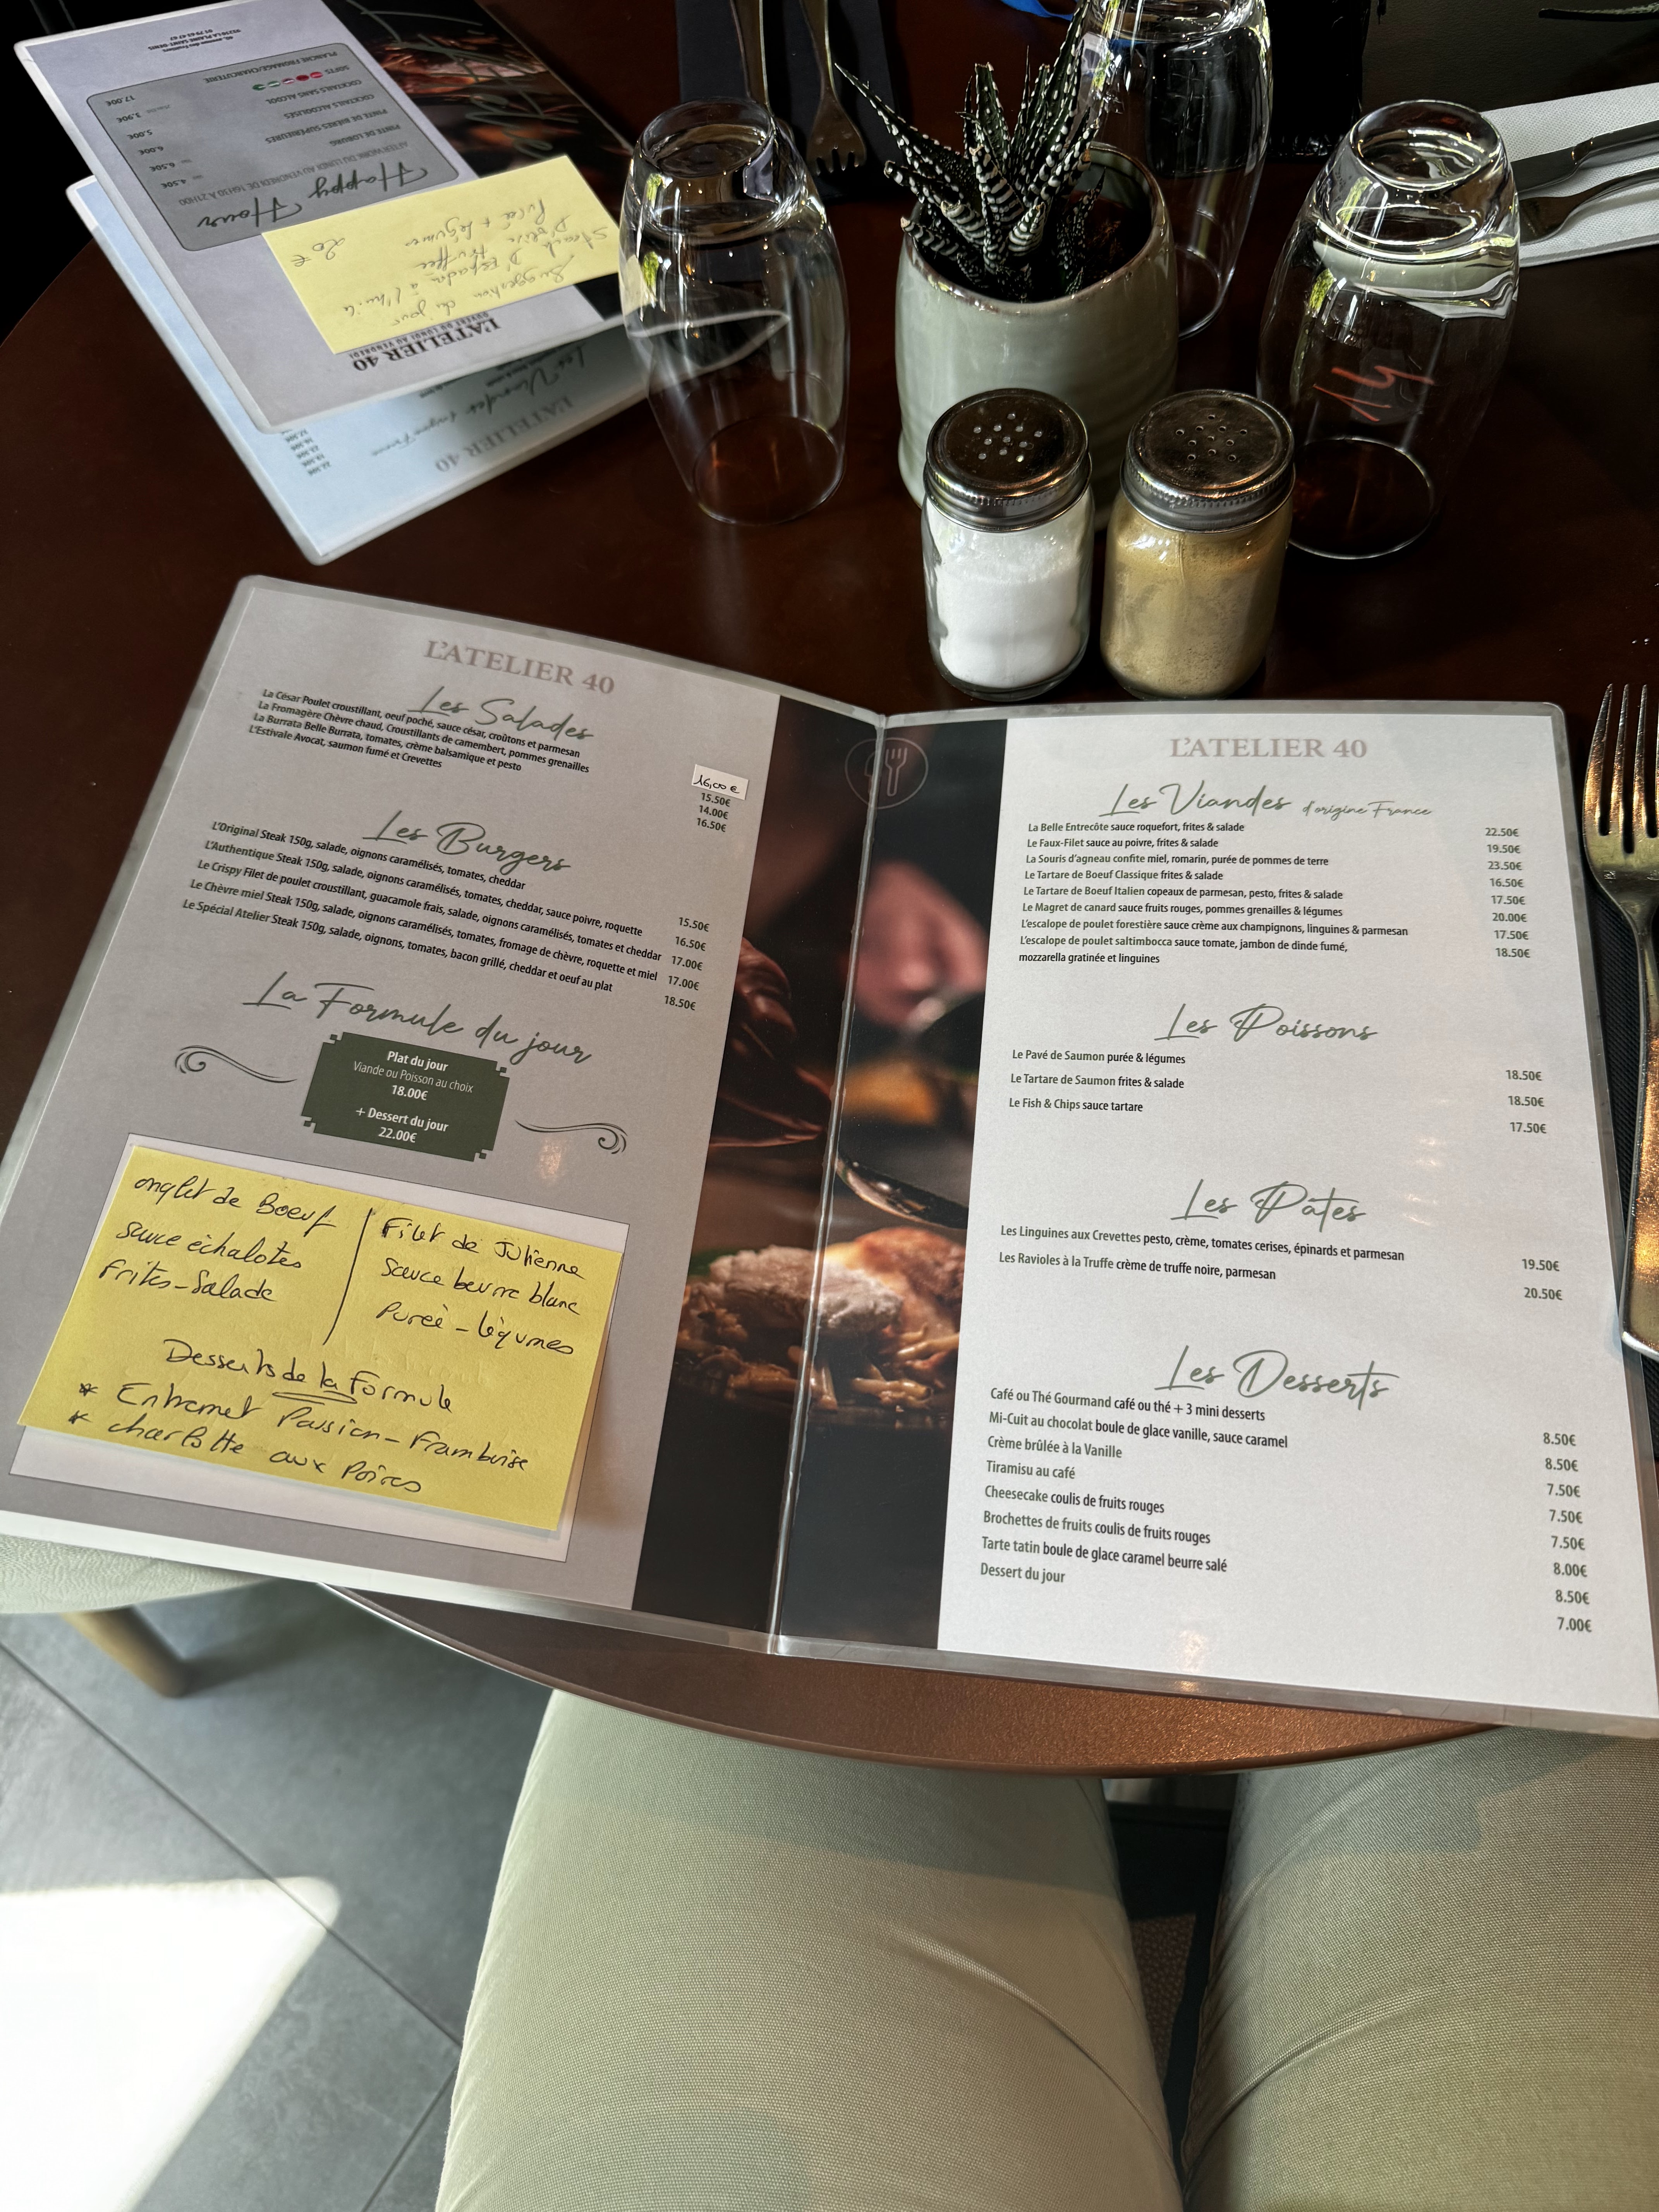 L'ATELIER 40
Les Salades
La César Poulet croustillant, oeuf poché, sauce césar, croûtons et parmesan
La Fromagère Chèvre chaud, Croustillants de camembert, pommes grenailles
La Burrata Belle Burrata, tomates, crème balsamique et pesto
L'Estivale Avocat, saumon fumé et Crevettes
16,00 €
15.50€
14.00€
16.50€
Les Burgers
L'Original Steak 150g, salade, oignons caramélisés, tomates, cheddar
L'Authentique Steak 150g, salade, oignons caramélisés, tomates, cheddar, sauce poivre, roquette
Le Crispy Filet de poulet croustillant, guacamole frais, salade, oignons caramélisés, tomates et cheddar
Le Chèvre miel Steak 150g, salade, oignons caramélisés, tomates, fromage de chèvre, roquette et miel
Le Spécial Atelier Steak 150g, salade, oignons, tomates, bacon grillé, cheddar et oeuf au plat
15.50€
16.50€
17.00€
17.00€
18.50€
La Formule du jour
Plat du jour
Viande ou Poisson au choix
18.00€
+ Dessert du jour
22.00€
onglet de Boeuf
sauce échalotes
frites-Salade
Filet de Julienne
Sauce beurre blanc
Purée - légumes
Desserts de la Formule
* Entremet Passion-Framboise
* charlotte aux Poires
L'ATELIER 40
Les Viandes d'origine France
La Belle Entrecôte sauce roquefort, frites & salade 22.50€
Le Faux-Filet sauce au poivre, frites & salade 19.50€
La Souris d'agneau confite miel, romarin, purée de pommes de terre 23.50€
Le Tartare de Boeuf Classique frites & salade 16.50€
Le Tartare de Boeuf Italien copeaux de parmesan, pesto, frites & salade 17.50€
Le Magret de canard sauce fruits rouges, pommes grenailles & légumes 20.00€
L'escalope de poulet forestière sauce crème aux champignons, linguines & parmesan 17.50€
L'escalope de poulet saltimbocca sauce tomate, jambon de dinde fumé, 18.50€
mozzarella gratinée et linguines
Les Poissons
Le Pavé de Saumon purée & légumes 18.50€
Le Tartare de Saumon frites & salade 18.50€
Le Fish & Chips sauce tartare 17.50€
Les Pâtes
Les Linguines aux Crevettes pesto, crème, tomates cerises, épinards et parmesan 19.50€
Les Ravioles à la Truffe crème de truffe noire, parmesan 20.50€
Les Desserts
Café ou Thé Gourmand café ou thé + 3 mini desserts 8.50€
Mi-Cuit au chocolat boule de glace vanille, sauce caramel 8.50€
Crème brûlée à la Vanille 7.50€
Tiramisu au café 7.50€
Cheesecake coulis de fruits rouges 7.50€
Brochettes de fruits coulis de fruits rouges 8.00€
Tarte tatin boule de glace caramel beurre salé 8.50€
Dessert du jour 7.00€
L'ATELIER 40
OUVERT DU LUNDI AU VENDREDI
Suggestion du jour
Steack D'Espadon à l'huile
D'olive truffee
Purée + légumes 20 €
Happy Hour
AFTERWORK DU LUNDI AU VENDREDI DE 16H30 À 21H00
PINTE DE LOBURG 4.50€
PINTE DE BIÈRES SUPÉRIEURES 6.50€
COCKTAILS ALCOOLISÉS 6.00€
COCKTAILS SANS ALCOOL 5.00€
SOFTS 3.90€
PLANCHE FROMAGE/CHARCUTERIE 17.00€
L'ATELIER 40
Les Viandes d'origine France
14